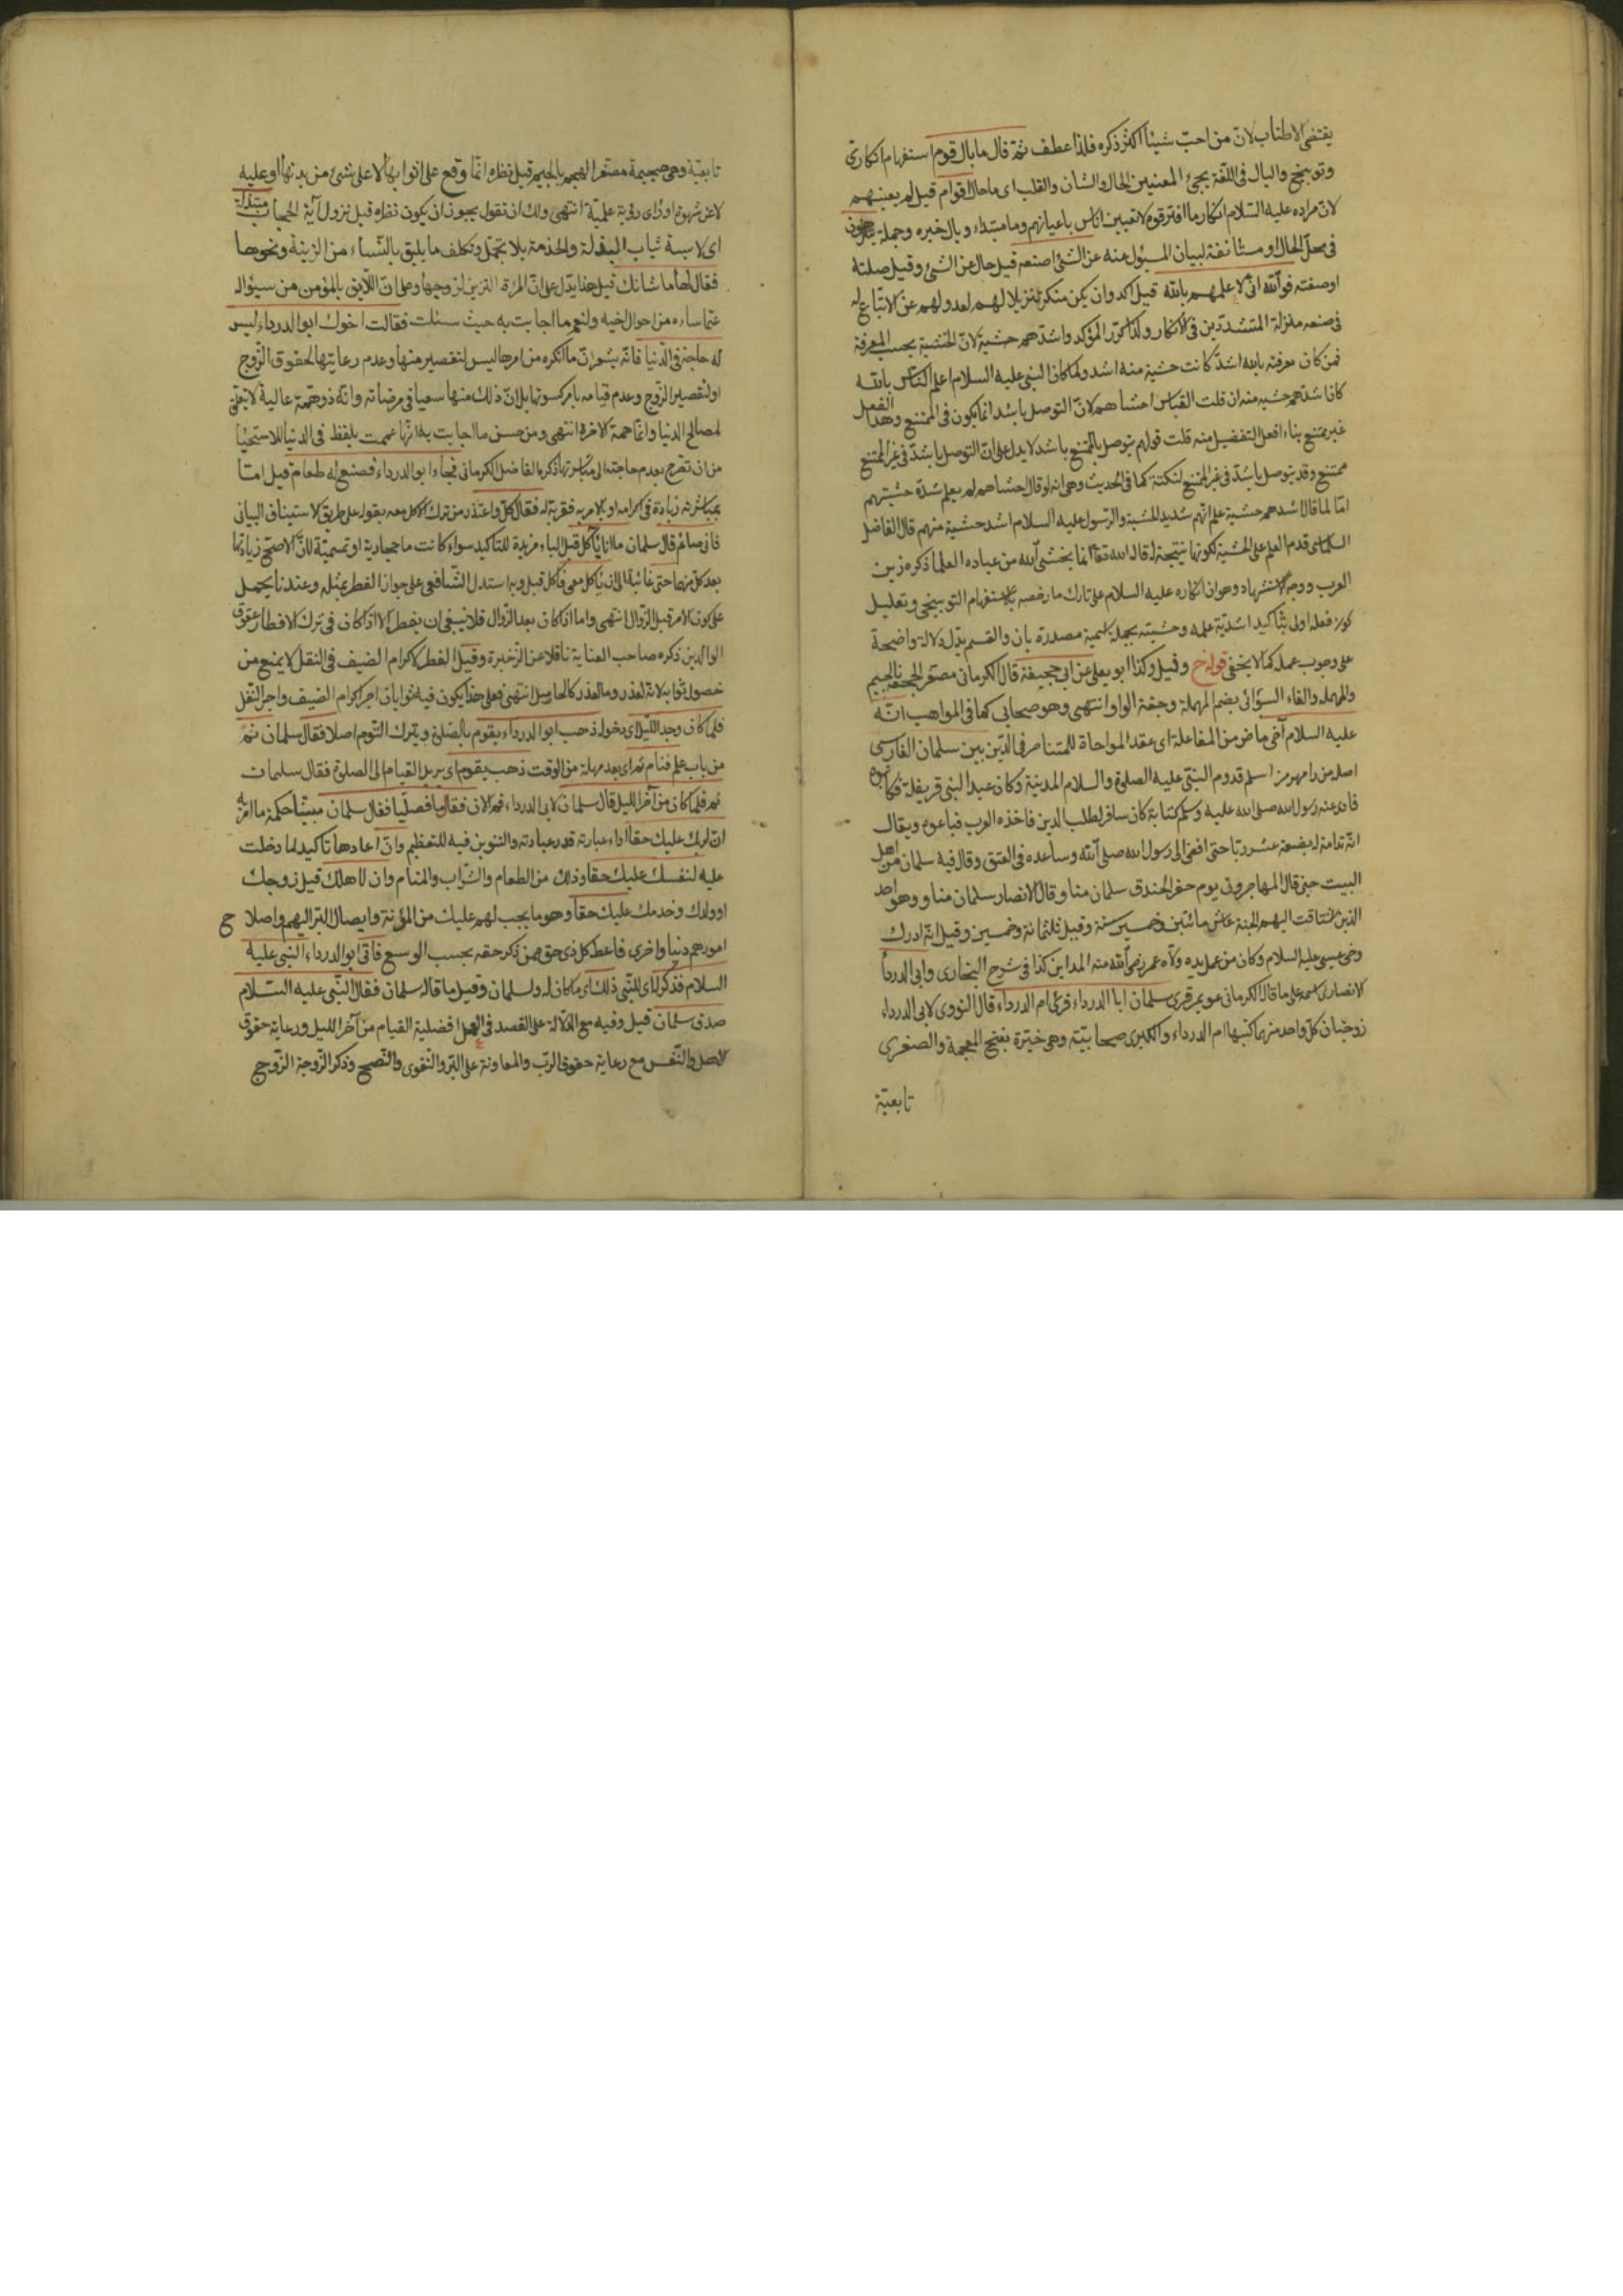 يقتضى الاطناب لان من احب شيئا اكثر ذكره فلذا عطف ثم قال ما بال قوم استفهام انكارى
وتوبيخ والبال فى اللغة يجئ المعنيين الحال والشان والقلب اى ما حال اقوام قيل لم يعينهم
لان مراده عليه السلام انكار ما اقترقوم لا تعيين اناس باعيانهم وما مبتداء وبال خبره وجملة
فى محل الحال او مستأنفة لبيان المسؤل عنه عن الشئ اصنعه قيل حال عن الشئ وقيل صلته
اوصفته فوالله انى لاعلمهم بالله قيل اكد وان يكن منكر تنزيلا لهم لعدولهم عن الاتباع له
فى صنعه منزلة المتشددين فى الانكار ولذا كرر المؤكد واشدهم خشية لان الخشية بحسب المعرفة
فمن كان معرفته بالله اشد كانت خشية منه اشد ولما كان النبى عليه السلام اعلم الناس بالله
كان اشدهم خشيه منه ان قلت القياس اخشاهم لان التوصل باشد انما يكون فى الممتنع وهذا الفعل
غير ممتنع بناء افعل التفضيل منه قلت قولهم يتوصل بالممتنع باشد لا يدل على ان التوصل باشد فى غير الممتنع
ممتنع وقد يتوصل باشد فى غير الممتنع لنكتة كما فى الحديث وهى انه لو قال اخشاهم لم يعلم شدة خشيتهم
اما لما قال اشدهم خشية علم انهم شديد الخشية والرسول عليه السلام اشد خشية منهم قال الفاضل
قدم العلم على الخشية لكونها نتيجة له قال الله تعا انما يخشى الله من عباده العلما ذكره زين
العرب ووجه الاستشهاد وهو ان انكاره عليه السلام على تارك ما رخصه باستفهام التوبيخى وتعليل
كون فعله اولى بتأكيد اشدية علمه وخشيته بجملة اسمية مصدرة بان والقسم يدل دلالة واضحة
على وجوب عمله كما لا يخفى قوله خ وقيل وكذا ابو يعلى عن ابى جحيفة قال الكرمانى مصغر الجحفة بالجيم
والمهملة والفاء السوائى بضم المهملة وخفة الواو انتهى وهو صحابى كما فى المواهب انه
عليه السلام آخى ماض من المفاعلة اى عقد المواخاة للمتناصر فى الدين بين سلمان الفارسى
اصله من رامهرمز اسلم قدوم النبى عليه الصلوة والسلام المدينة وكان عبدا لبنى قريظة فكاتبوه
فادى عنه رسول الله صلى الله عليه وسلم كتابة كان سافر لطلب الدين فاخذه العرب فباعوه ويقال
انه تداوله بضعة عشر ربا حتى افضى الى رسول الله صلى الله وساعده فى العتق وقال فيه سلمان من اهل
البيت حين قال المهاجرون يوم حفر الخندق سلمان منا وقال الانصار سلمان منا وهو احد
الذين اشتاقت اليهم الجنة عاش مائتين وخمسين سنة وقيل ثلثمائة وخمسين وقيل انه ادرك
وصى عيسى عليه السلام وكان من عمل يده ولاه عمر رضى الله عنه المداين كذا فى شرح البخارى وابى الدرداء
الانصارى اسمه على ما قال الكرمانى عويمر فرأى سلمان ابا الدرداء فرأى ام الدرداء قال النووى لابى الدرداء
زوجتان كل واحد منهما كنيتها ام الدرداء والكبرى صحابية وهى خيرة بفتح المعجمة والصغرى
تابعية
تابعية وهى هجيمة مصغر الهجم بالجيم قيل نظره انما وقع على اثوابها لا على شئ من بدنها او عليه
لا عن شهوة او رأى رؤية علمية انتهى ولك ان تقول يجوز ان يكون نظره قبل نزول آية الحجاب متبذلة
اى لابسة ثياب البذلة والخدمة بلا تجمل وتكلف ما يليق بالنساء من الزينة ونحوها
فقال لها ما شانك قيل هذا يدل على ان المرأة التزين لزوجها وعلى ان اللايق بالمؤمن من سؤاله
عما ساءه من احوال اخيه ولنعم ما اجابت به حيث سئلت فقالت اخوك ابو الدرداء ليس
له حاجة فى الدنيا فانه يشعر ان ما انكره من امرها ليس لتقصير منها وعدم رعايتها لحقوق الزوج
او لتقصير الزوج وعدم قيامه بامر كسوتها بل ان ذلك منها سعيا فى مرضاته وانه ذو همة عالية لا تبقى
لمصالح الدنيا وانما همة الآخرة انتهى ومن حسن ما اجابت به انها عممت بلفظ فى الدنيا للاستحياء
من ان تصرح بعدم حاجته الى مباشرتها ذكره الفاضل الكرمانى فجاء ابو الدرداء فصنع له طعام قيل اما
بمباشرته زيادة فى اكرامه او بالامر به فقربه له فقال كل واعتذر من ترك الاكل معه بقوله على طريق الاستيناف البيانى
فانى صائم قال سلمان ما انا بآكل قيل الباء مزيدة للتاكيد سواء كانت ما حجازية او تميمية لان الاصح زيادتها
بعد كل منهما حتى غائية الى ان تأكل معى فاكل قيل وبه استدل الشافعى على جواز الفطر بمثله وعندنا يحمل
على كون الامر قبل الزوال انتهى واما اذا كان بعد الزوال فلا ينبغى ان يفطر الا اذا كان فى ترك الافطار عقوق
الوالدين ذكره صاحب العناية ناقلا عن الذخيرة وقيل الفطر لاكرام الضيف فى النفل لا يمنع من
حصول ثوابه لانه لعذر وما لعذر كالحاصل انتهى فعلى هذا يكون فيه ثوابان اجر اكرام الضيف واجر النفل
فلما كان وجد الليل اى دخول ذهب ابو الدرداء يقوم بالصلوة ويترك النوم اصلا فقال سلمان نم
من باب علم فنام ثم اى بعد مهلة من الوقت ذهب يقوم اى يريد القيام الى الصلوة فقال سلمان
نم فلما كان من آخر الليل قال سلمان لابى الدرداء قم الان فقاما فصليا فقال سلمان مبينا حكمة ما امر به
ان لربك عليك حقا اداء عبارة قدر عبادته والتنوين فيه للتعظيم وان اعادها تاكيد لما دخلت
عليه لنفسك عليك حقا وذلك من الطعام والشراب والمنام وان لاهلك قيل زوجك
او ولدك وخدمك عليك حقا وهو ما يجب لهم عليك من المؤنة وايصال البر اليهم واصلاح
امورهم دنيا واخرى فاعط كل ذى حق ممن ذكر حقه بحسب الوسع فاتى ابو الدرداء النبى عليه
السلام فذكر له اى للنبى ذلك اى ما كان له ولسلمان وقيل ما قاله سلمان فقال النبى عليه السلام
صدق سلمان قيل وفيه مع الدلالة على القصد فى العمل افضلية القيام من آخر الليل ورعاية حقوق
الاهل والنفس مع رعاية حقوق الرب والمعاونة على البر والتقوى والنصح وذكر الزوجة الزوج